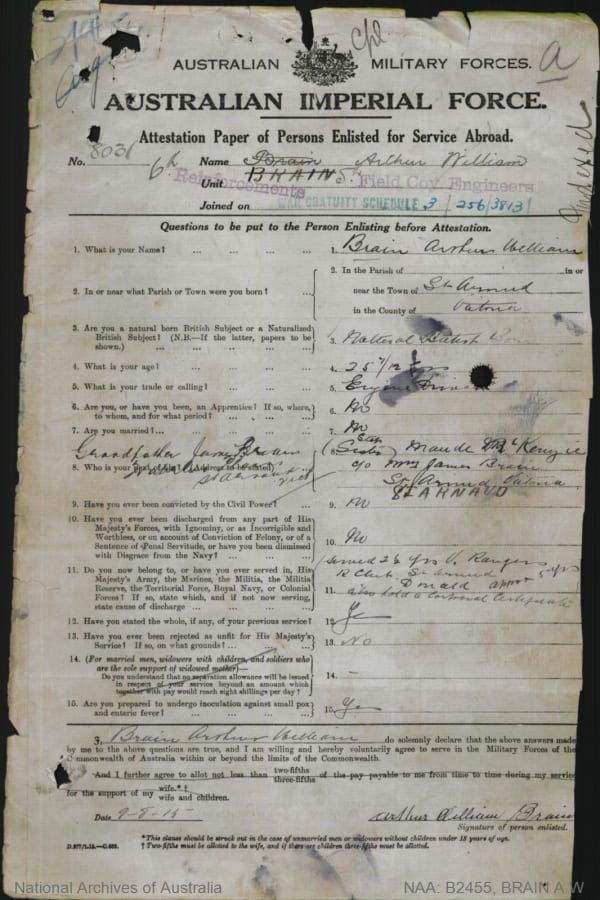 Cpl
a
AUSTRALIAN MILITARY FORCES.
AUSTRALIAN IMPERIAL FORCE.
Attestation Paper of Persons Enlisted for Service Abroad.
Indexed
No. 8031 Name Brain Arthur William
6th BRAIN
Reinforcements Unit 5th Field Coy Engineers
Joined on WAR GRATUITY SCHEDULE 3/256/3813
Questions to be put to the Person Enlisting before Attestation.
1. What is your Name? ... ... ... ... 1. Brain Arthur William
2. In or near what Parish or Town were you born? ... 2. In the Parish of in or
near the Town of St Arnaud
in the County of Victoria
3. Are you a natural born British Subject or a Naturalized
British Subject? (N.B.—If the latter, papers to be
shown.) ... ... ... ... 3. Natural British Born
4. What is your age? ... ... ... ... 4. 25 7/12 yrs
5. What is your trade or calling? ... ... ... 5. Engine Driver
6. Are you, or have you been, an Apprentice? If so, where,
to whom, and for what period? ... ... 6. No
7. Are you married? ... ... ... ... 7. No
Grandfather James Brain
St Arnaud
8. Who is your next of kin? (Address to be stated) ... 8. Sister Maude McKenzie
c/o Mrs James Brain
St Arnaud Victoria
ST ARNAUD
9. Have you ever been convicted by the Civil Power? ... 9. No
10. Have you ever been discharged from any part of His
Majesty's Forces, with Ignominy, or as Incorrigible and
Worthless, or on account of Conviction of Felony, or of a
Sentence of Penal Servitude, or have you been dismissed
with Disgrace from the Navy? ... ... 10. No
11. Do you now belong to, or have you ever served in, His
Majesty's Army, the Marines, the Militia, the Militia
Reserve, the Territorial Force, Royal Navy, or Colonial
Forces? If so, state which, and if not now serving,
state cause of discharge ... ... ... 11. served 2½ yrs V. Rangers
R Club St Arnaud
Donald approx 5 yrs
also hold a Corporal Certificate
12. Have you stated the whole, if any, of your previous service? 12. Yes
13. Have you ever been rejected as unfit for His Majesty's
Service? If so, on what grounds? ... ... 13. No
14. (For married men, widowers with children, and soldiers who
are the sole support of widowed mother)—
Do you understand that no separation allowance will be issued
in respect of your service beyond an amount which
together with pay would reach eight shillings per day? 14. –
15. Are you prepared to undergo inoculation against small pox
and enteric fever? ... ... ... 15. Yes
I, Brain Arthur William do solemnly declare that the above answers made
by me to the above questions are true, and I am willing and hereby voluntarily agree to serve in the Military Forces of the
Commonwealth of Australia within or beyond the limits of the Commonwealth.
And I further agree to allot not less than two-fifths three-fifths of the pay payable to me from time to time during my service
for the support of my wife.*† wife and children.
Date 9-8-15 Arthur William Brain
Signature of person enlisted.
*This clause should be struck out in the case of unmarried men or widowers without children under 18 years of age.
D.877/1.15.—C.803. † Two-fifths must be allotted to the wife, and if there are children three-fifths must be allotted.
National Archives of Australia NAA: B2455, BRAIN A W